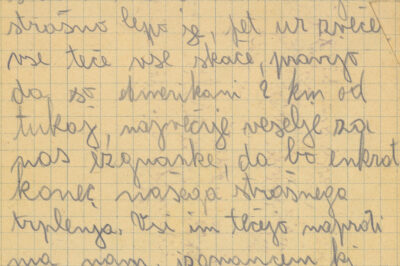 strašno lepo je, pet ur zvečer
vse teče vse skače, pravjo
da so Amerikani 2 km od
tukaj, največje veselje za
nas izgnanke, da bo enkrat
konec našega strašnega
trplenja. Vsi im tečejo naproti
nam, ki